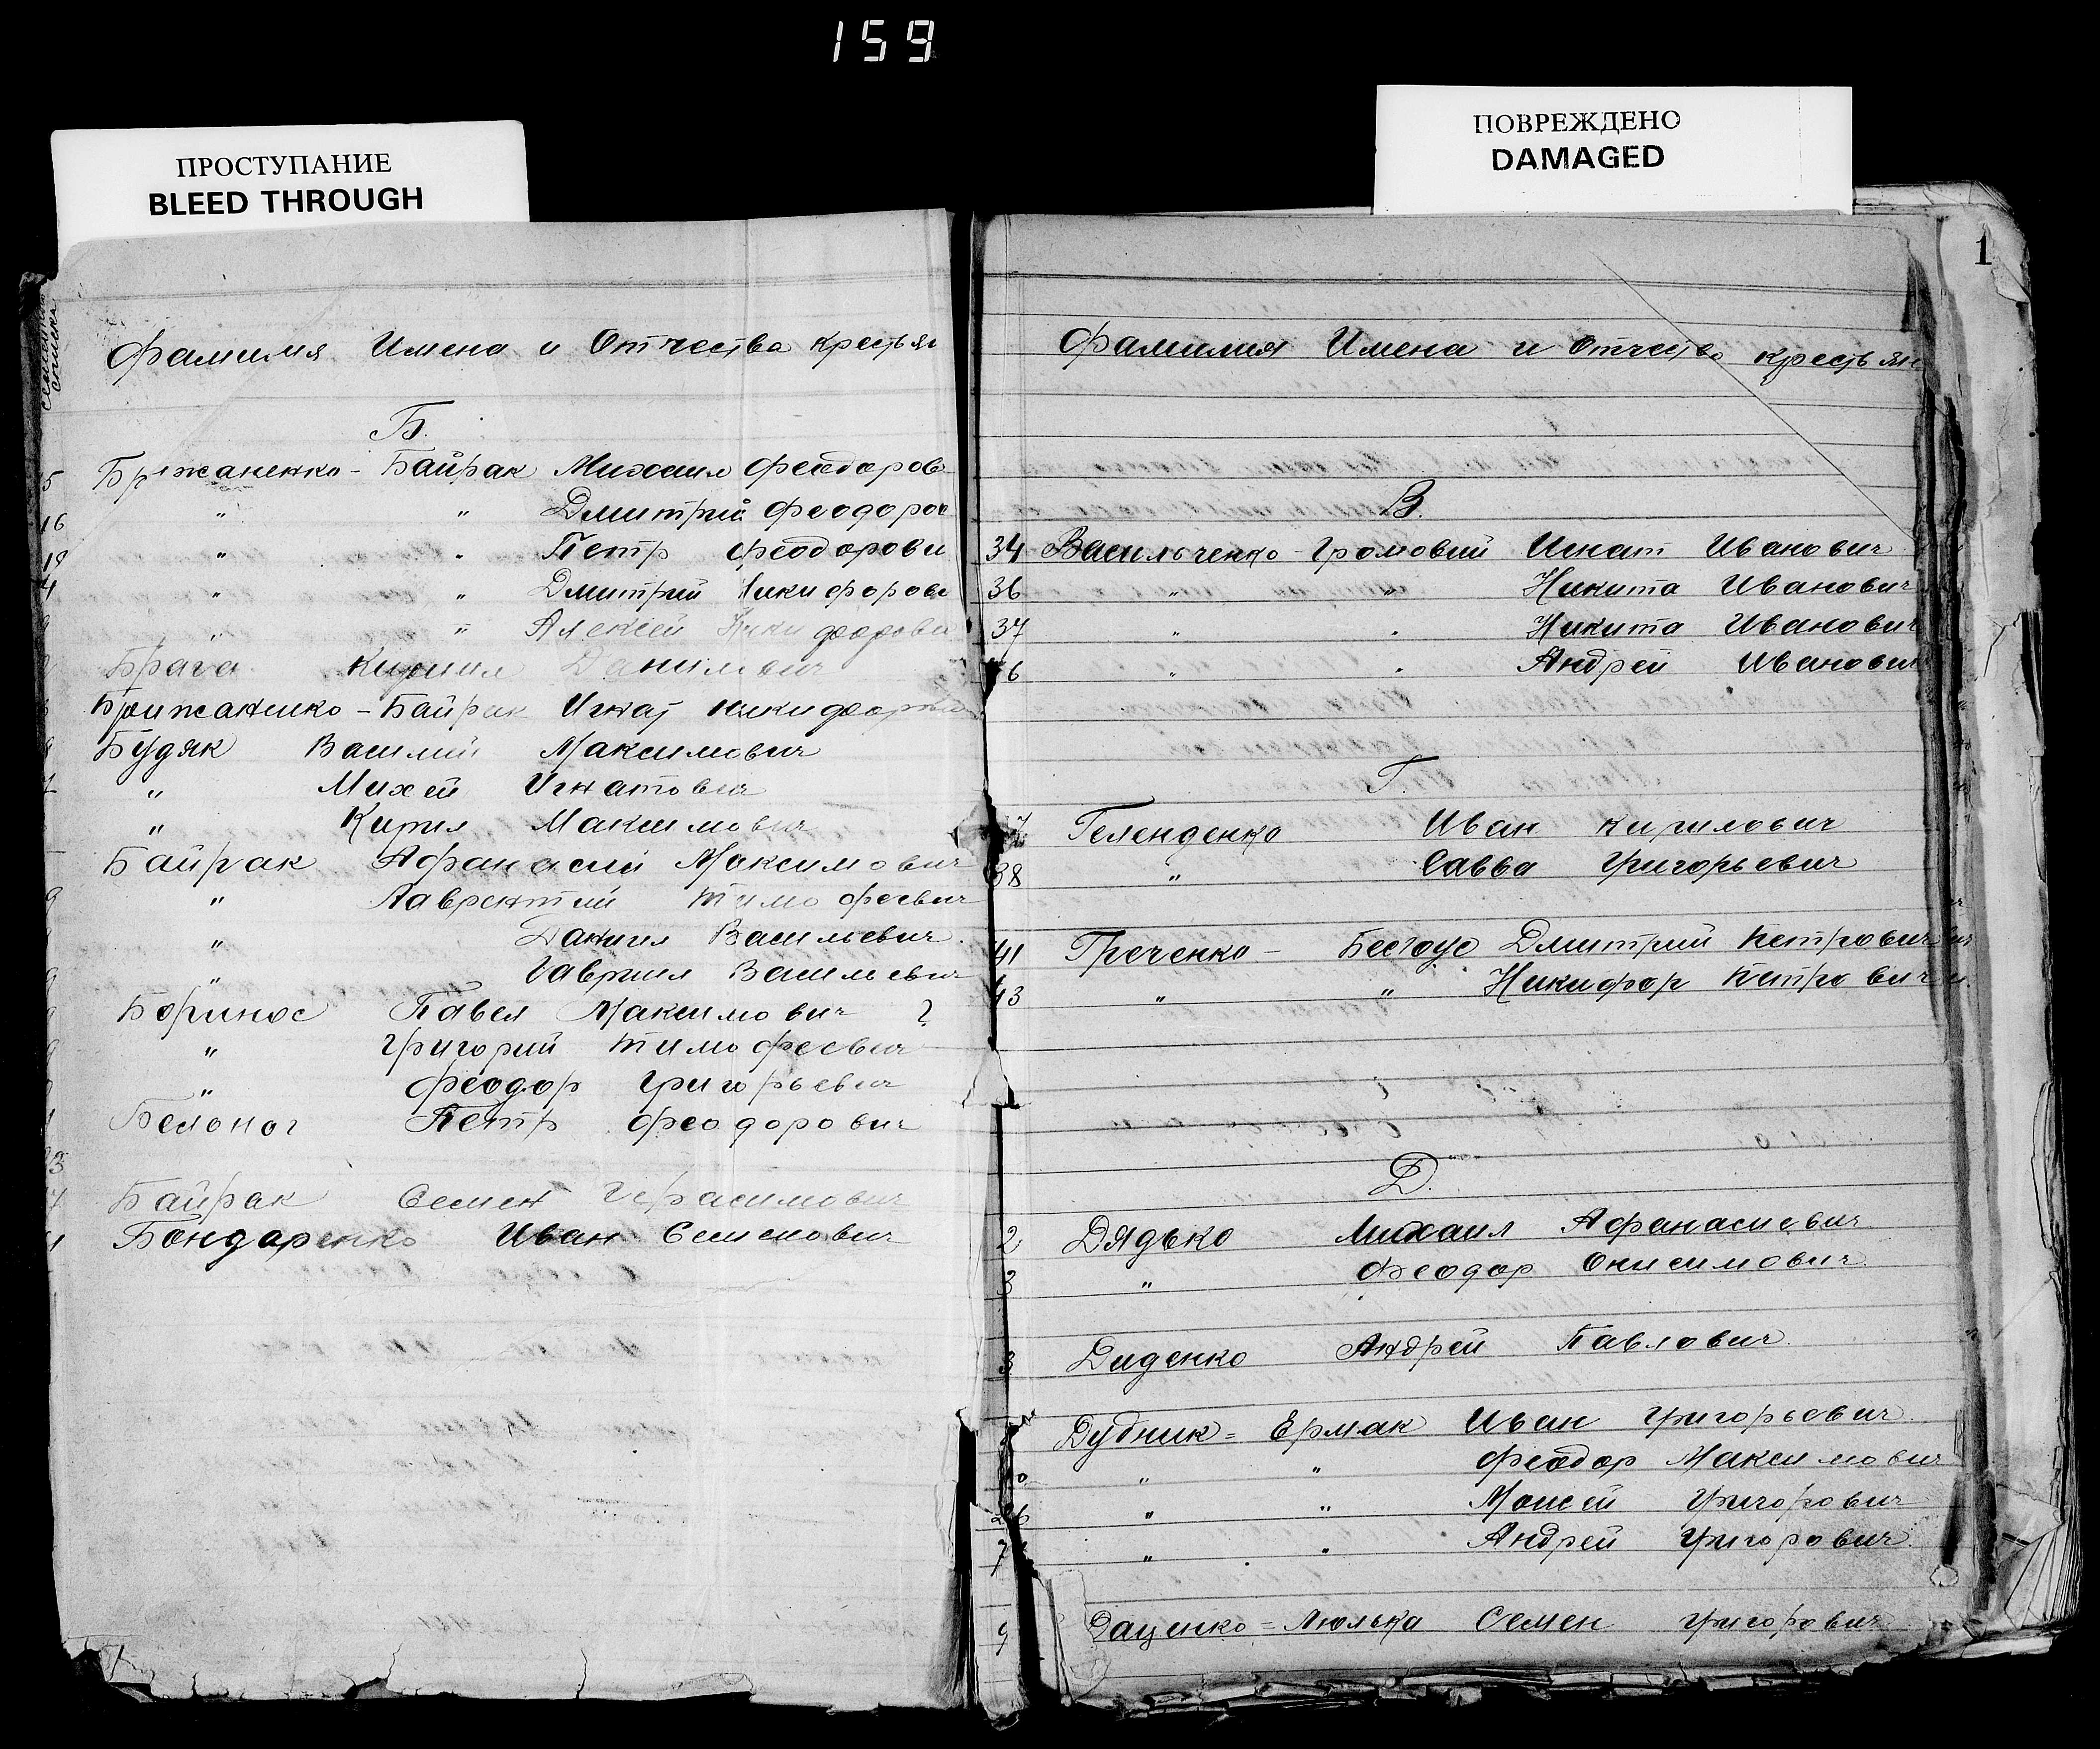 159
ПРОСТУПАНИЕ
BLEED THROUGH
ПОВРЕЖДЕНО
DAMAGED
1
списка
Фамилия Имена и Отчества крестьян
Б.
5 Брижаненко - Байрак Михаил Феодоров
16 " " Дмитрий Феодоров
18 " " Петр Феодорови
4 " " Дмитрий Никифорови
" " Алексей Никифорови
Брага Кирилл Данилович
Брижаненко - Байрак Игнат Никифорови
Будяк Василий Максимович
" Михей Игнатович
" Кирил Максимович
Байрак Афанасий Максимович
" Лаврентий Тимофеевич
" Данил Васильевич
" Гавриил Васильевич
Боринос Павел Максимович ?
" Григорий Тимофеевич
" Феодор Григорьевич
Белоног Петр Феодорович
Байрак Семен Герасимович
Бондаренко Иван Семенович
Фамилия Имена и Отчество крестьян
В.
34 Васильченко - Громовий Игнат Иванович
36 " " Никита Иванович
37 " " Никита Иванович
6 " " Андрей Иванович
Г.
Геленденко Иван Кирилович
38 " Савва Григорьевич
41 Греченко - Бесгоус Дмитрий Петрович
43 " " Никифор Петрович
Д.
2 Дядько Михаил Афанасиевич
3 " Феодор Онисимович
3 Диденко Андрей Павлович
Дубник = Ермак Иван Григорьевич
" " Феодор Максимович
" " Моисей Григорович
7 " " Андрей Григорович
9 Даценко = Люлька Семен Григорович